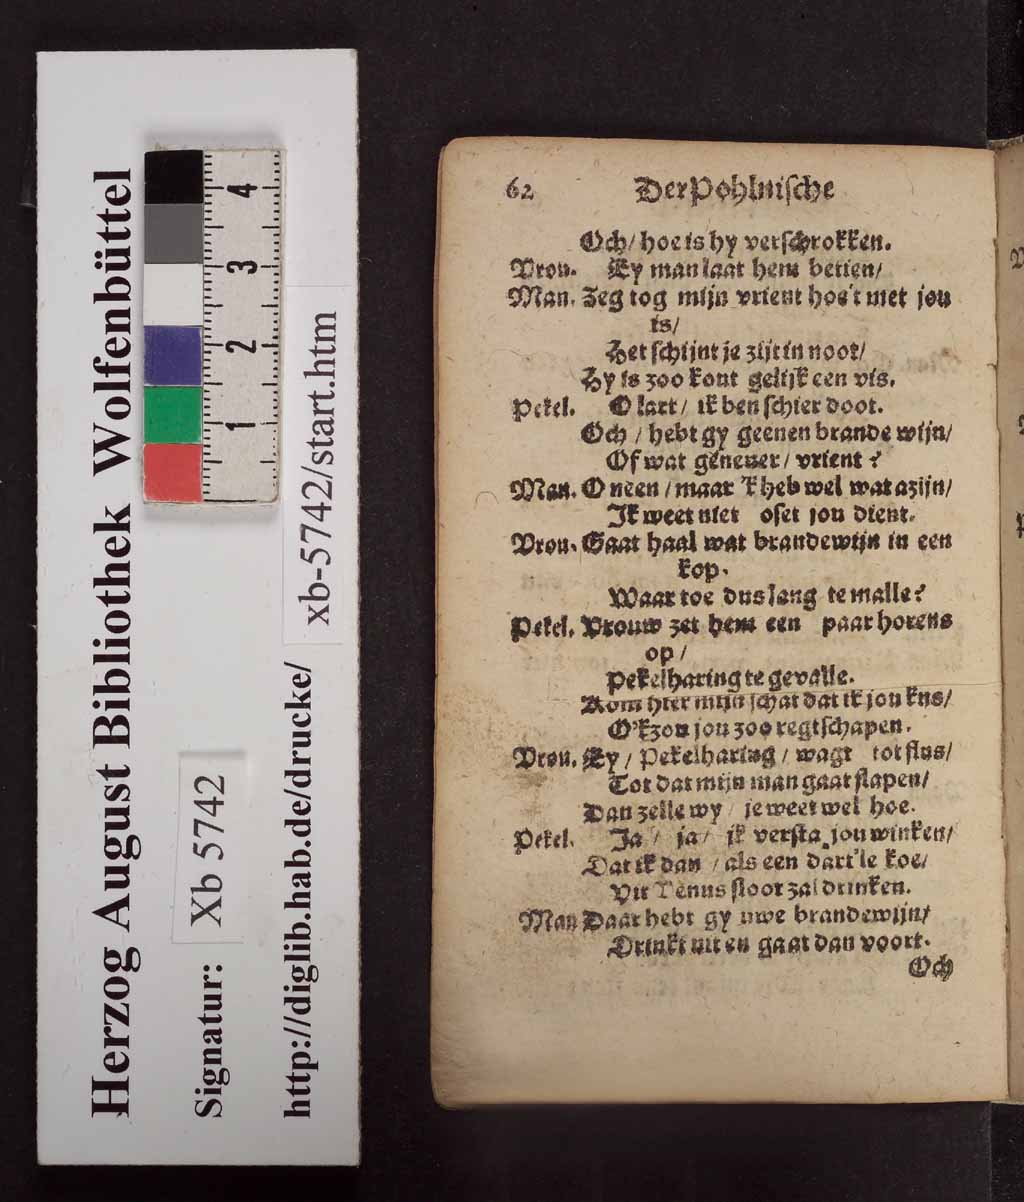 Herzog August Bibliothek Wolfenbüttel
Signatur: Xb 5742
http://diglib.hab.de/drucke/ xb-5742/start.htm
4
3
2
1
62 Der Pohlnische
Och/ hoe is hy verschrokken.
Vrou. Ey man laat hem betien/
Man. Zeg tog mijn vrient hoe't met jou
is/
Het schijnt je zijt in noot/
Hy is zoo kout gelijk een vis.
Pekel. O hart/ ik ben schier doot.
Och / hebt gy geenen brande wijn/
Of wat genever/ vrient?
Man. O neen / maar 'k heb wel wat azijn/
Ik weet niet ofet jou dient.
Vrou. Gaat haal wat brandewijn in een
kop.
Waar toe dus lang te malle?
Pekel. Vrouw zet hem een paar horens
op/
Pekelharing te gevalle.
Kom hier mijn schat dat ik jou kus/
O 'k zou jou zoo regtschapen.
Vrou. Ey/ Pekelharing / wagt tot flus/
Tot dat mijn man gaat slapen/
Dan zelle wy / je weet wel hoe.
Pekel. Ja / ja/ ik versta jou winken/
Dat ik dan / als een dart'le koe/
Uit Venus sloot zal drinken.
Man Daar hebt gy uwe brandewijn/
Drinkt uit en gaat dan voort.
Och